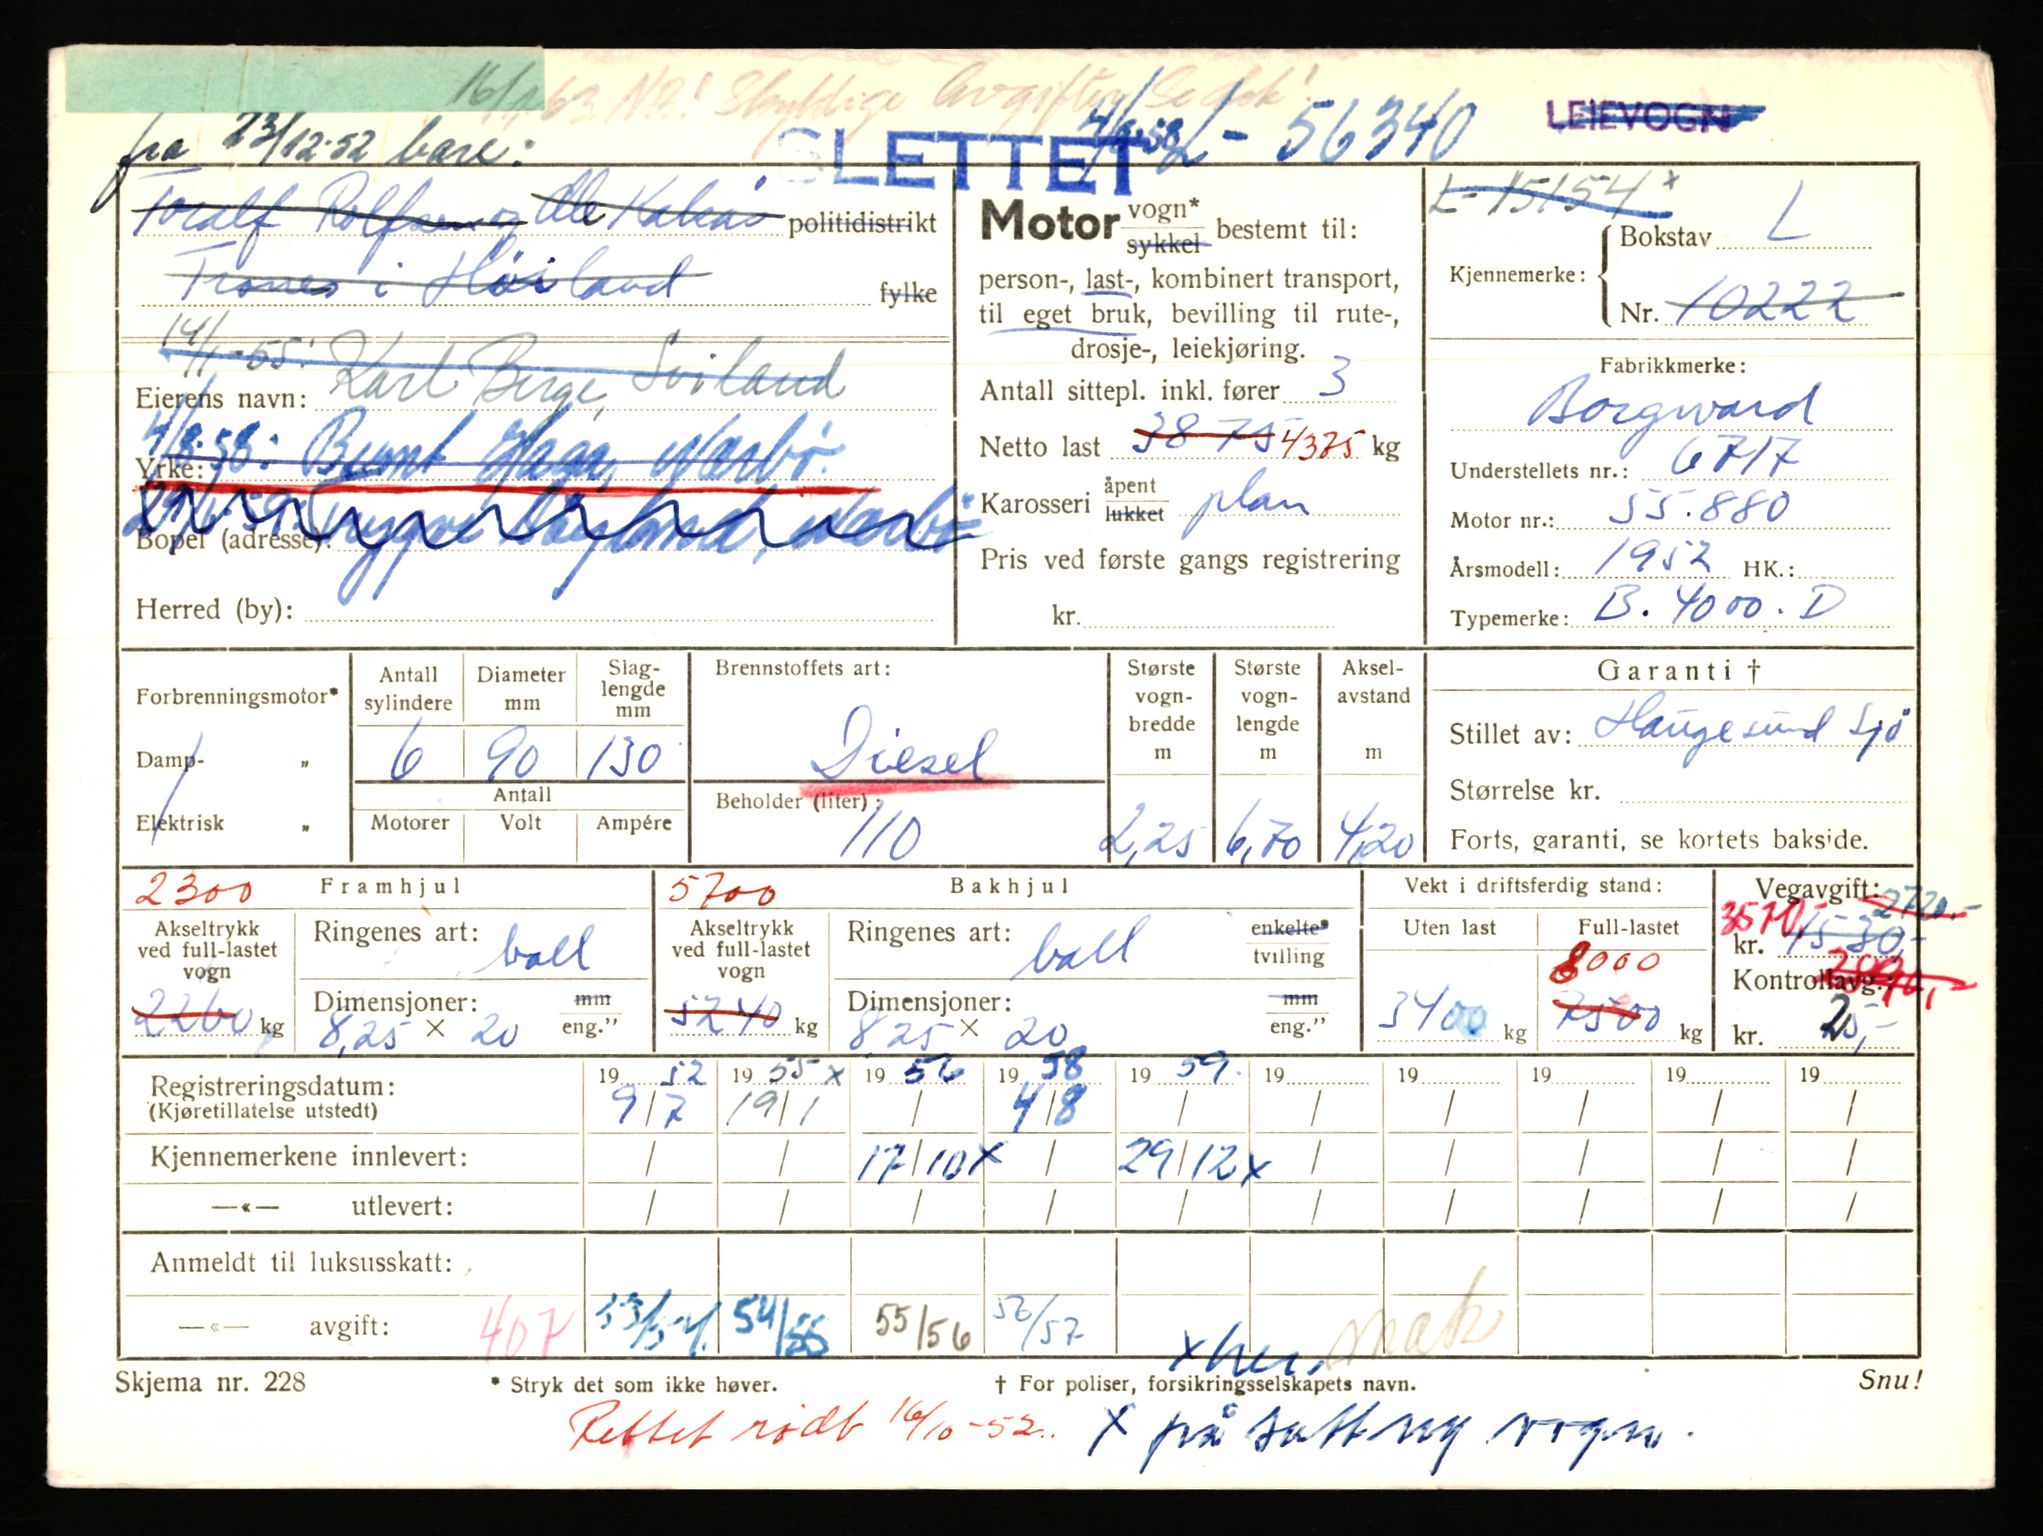 16/1 63 NB! Skyldige Avgifter
fra 23/12-52 bare:
SLETTET
4/8-58 L - 56340
LEIEVOGN
Toralf Rolfsen og Ole politidistrikt
Trones i Høiland fylke
14/1-55: Karl Berge, Sviland
Eierens navn:
4/8-58: Haga, Nærbø.
Yrke:
Bopel (adresse):
Herred (by):
Motor vogn* sykkel bestemt til:
person-, last-, kombinert transport,
til eget bruk, bevilling til rute-,
drosje-, leiekjøring.
Antall sittepl. inkl. fører 3
Netto last 3875 4375 kg
Karosseri åpent lukket plan
Pris ved første gangs registrering
kr.
L-15154 x
Kjennemerke: Bokstav L
Nr. 10222
Fabrikkmerke:
Borgward
Understellets nr.: 6717
Motor nr.: 55.880
Årsmodell: 1952 HK.:
Typemerke: B. 4000. D
Forbrenningsmotor*
Damp- „
Elektrisk „
Antall sylindere 6
Diameter mm 90
Slag-lengde mm 130
Antall
Motorer Volt Ampére
Brennstoffets art:
Diesel
Beholder (liter):
110
Største vogn-bredde m 2,25
Største vogn-lengde m 6,70
Aksel-avstand m 4,20
Garanti †
Stillet av: Haugesund Sjø
Størrelse kr.
Forts, garanti, se kortets bakside.
2300 Framhjul
Akseltrykk ved full-lastet vogn
2260 kg
Ringenes art: ball
Dimensjoner: mm eng.”
8,25 × 20
5700 Bakhjul
Akseltrykk ved full-lastet vogn
5240 kg
Ringenes art: ball enkelte* tvilling
Dimensjoner: mm eng.”
825 × 20
Vekt i driftsferdig stand:
Uten last Full-lastet
8000
3400 kg 7500 kg
Vegavgift: 2720.-
3570,-
kr. 1530,-
Kontrollavg.:
kr. 20,-
Registreringsdatum: 19 52 19 55 x 19 56 19 58 19 59. 19 19 19 19 19
(Kjøretillatelse utstedt) 9/7 19/1 / 4/8 / / / / / /
Kjennemerkene innlevert: / / 17/10 x / 29/12 x / / / / /
—«— utlevert: / / / / / / / / / /
Anmeldt til luksusskatt:
—«— avgift: 407 53/54. 54/55 55/56 56/57
x her.
Skjema nr. 228
* Stryk det som ikke høver.
† For poliser, forsikringsselskapets navn.
Snu!
Rettet rødt 16/10-52.
X på satt ny vogn.